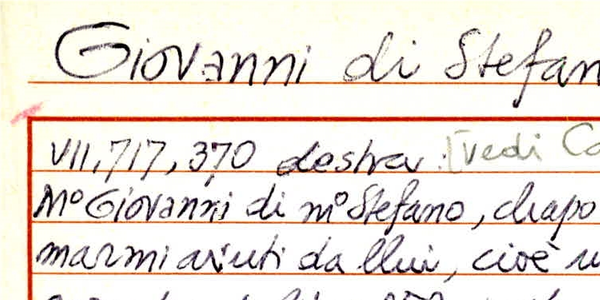 Giovanni di Stefan
VII, 717, 370 destra: [vedi Ca
M° Giovanni di m° Stefano, chapo
marmi avuti da llui, cioè